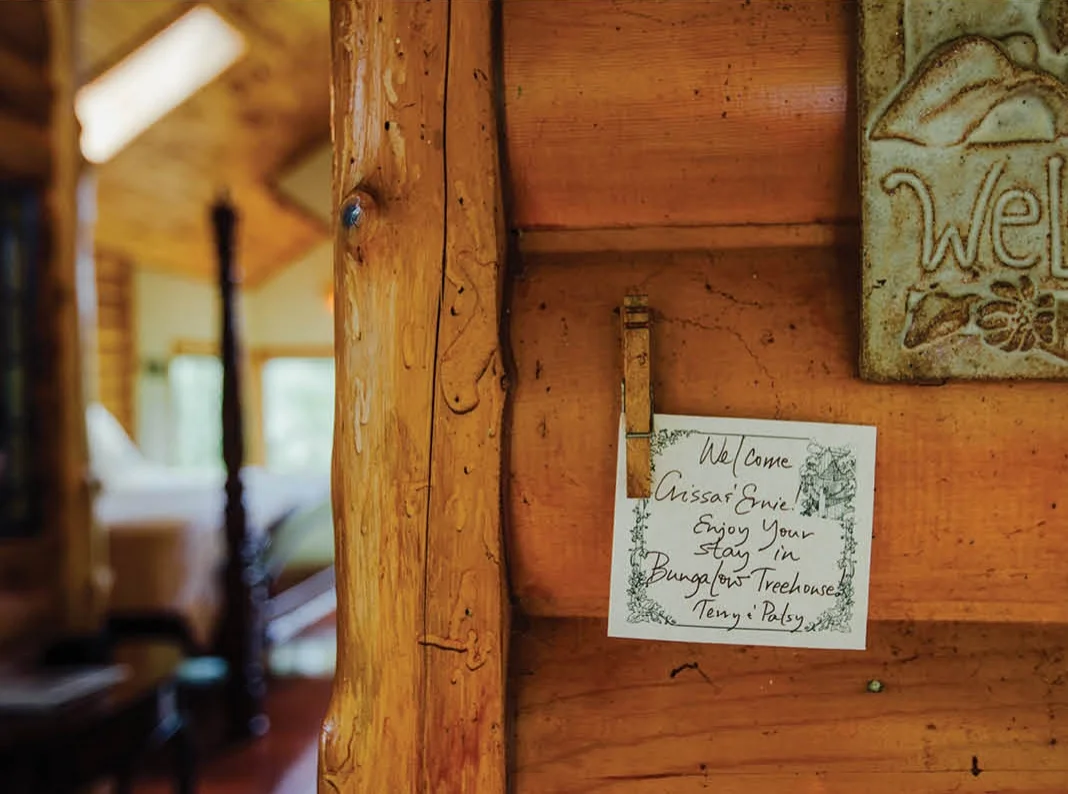 Wel
Welcome
Crissa & Ernie!
Enjoy Your
Stay in
Bungalow Treehouse!
Terry & Patsy